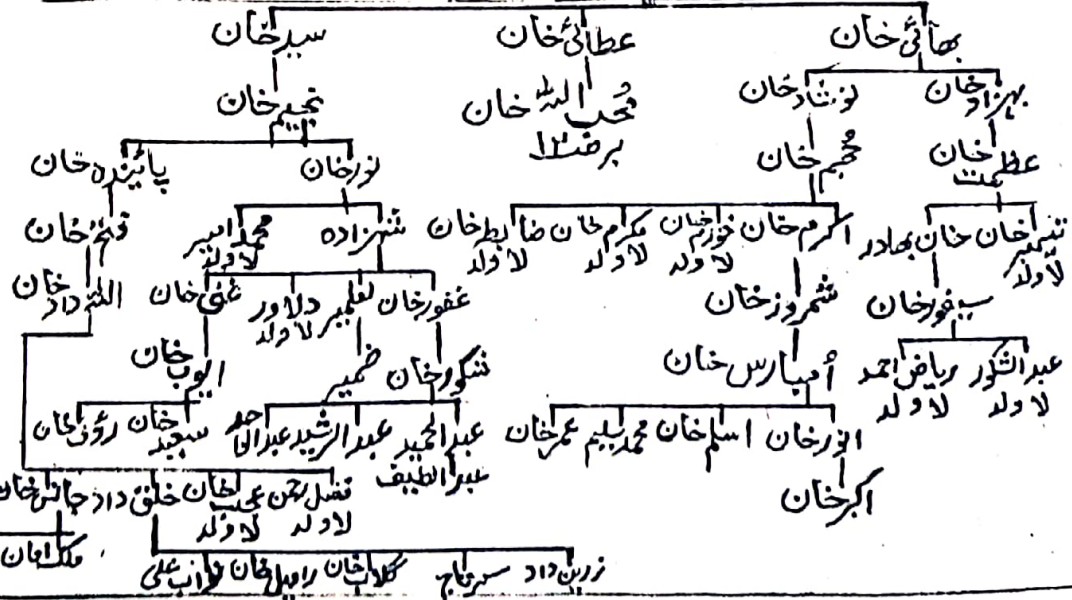 بھائی خان عطائی خان سید خان
بہزاد خان نوشاد خان محب اللہ خان نجیم خان
برصفحہ ۱۲
عظمت خان معجم خان نور خان پائیندہ خان
شمیر خان لاولد خان بہادر اکرم خان خورم خان لاولد مکرم خان لاولد ضابط خان لاولد شہزادہ محمد امیر لاولد فتح خان
سیفور خان شمروز خان غفور خان لعلمیر دلاور لاولد غنی خان اللہ داد خان
عبدالشکور لاولد ریاض احمد لاولد اُمبارس خان شکور خان ضمیر ایوب خان
انور خان اسلم خان محمد سلیم عمر خان عبدالحمید عبدالرشید عبدالواحد سعید خان رؤف خان
اکبر خان عبداللطیف
فضل رحمن لاولد عجب خان لاولد خلق داد جانس خان
زرین داد سرتاج گلاب خان رامیل خان نواب علی ملک امان